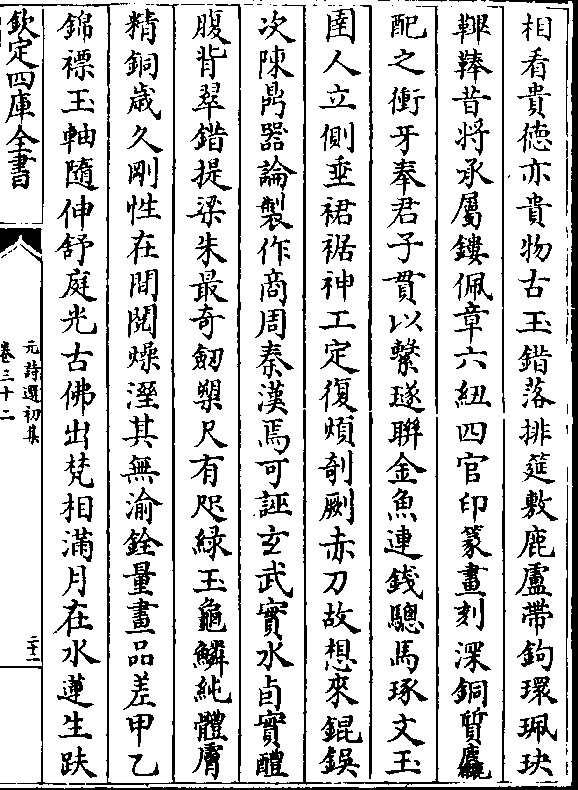 相看貴德亦貴物古玉錯落排筵敷鹿盧帶鉤環珮玦
鞞鞛昔將承屬鏤佩章六紐四官印篆畫刻深銅質
配之衝牙奉君子貫以繫璲聯金魚連錢驄馬琢文玉
圉人立側垂裙裾神工定復煩剞劂赤刀故想來錕鋘
次陳鼎器論製作商周秦漢焉可誣玄武實水卣實醴
腹背翠錯提梁朱最奇劒槊尺有咫綠玉龜鱗純體膚
精銅歲久剛性在間閱燥溼其無渝銓量畫品差甲乙
錦褾玉軸隨伸舒庭光古佛出梵相滿月在水蓮生趺
欽定四庫全書
元詩選初集
卷三十二
二十二